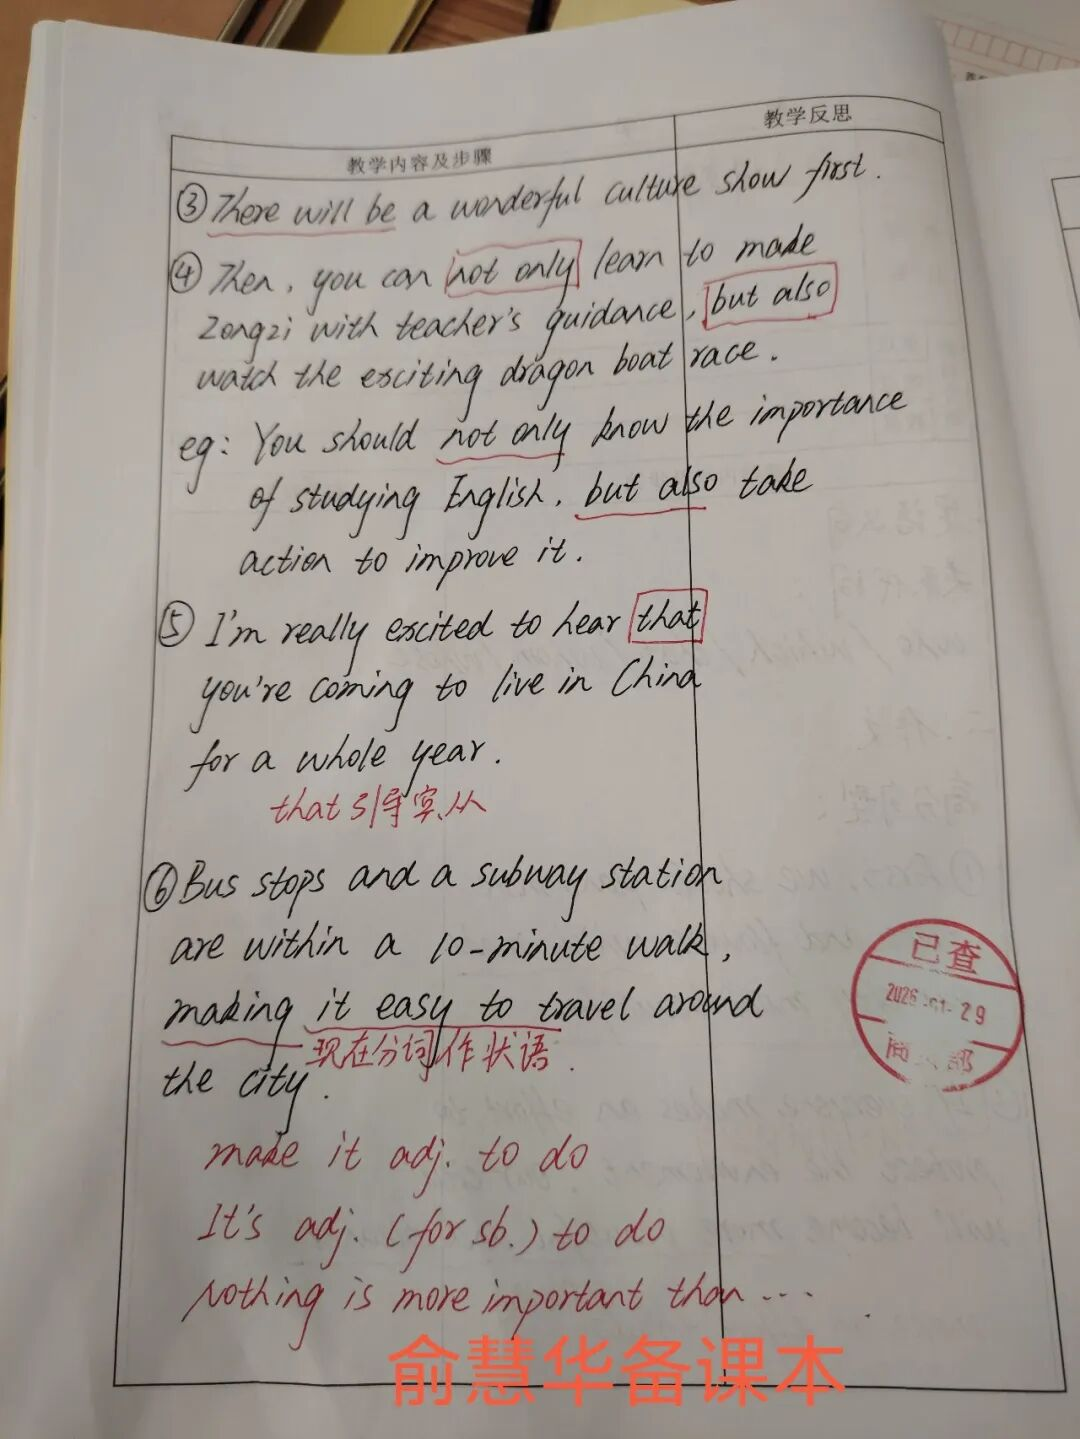 教学内容及步骤
教学反思
③ There will be a wonderful culture show first.
④ Then, you can not only learn to make
Zongzi with teacher's guidance, but also
watch the exciting dragon boat race.
eg: You should not only know the importance
of studying English, but also take
action to improve it.
⑤ I'm really excited to hear that
you're coming to live in China
for a whole year.
that引导宾从
⑥ Bus stops and a subway station
are within a 10-minute walk,
making it easy to travel around
现在分词作状语.
the city.
make it adj. to do
It's adj. (for sb.) to do
Nothing is more important than...
已查
29
部
俞慧华备课本